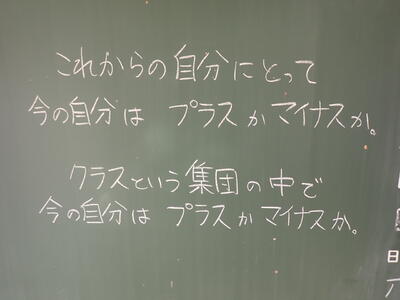 これからの自分にとって
今の自分は プラスかマイナスか。
クラスという集団の中で
今の自分は プラスかマイナスか。
日